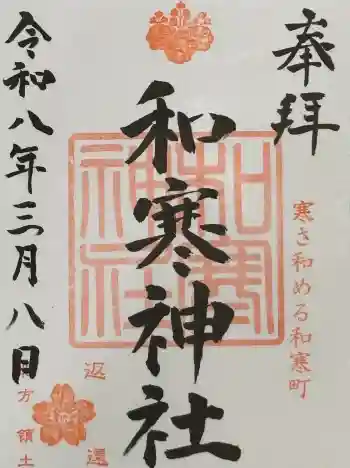 奉拝
寒さ和める和寒町
和寒神社
和寒神社
令和八年三月八日
返還
北方領土